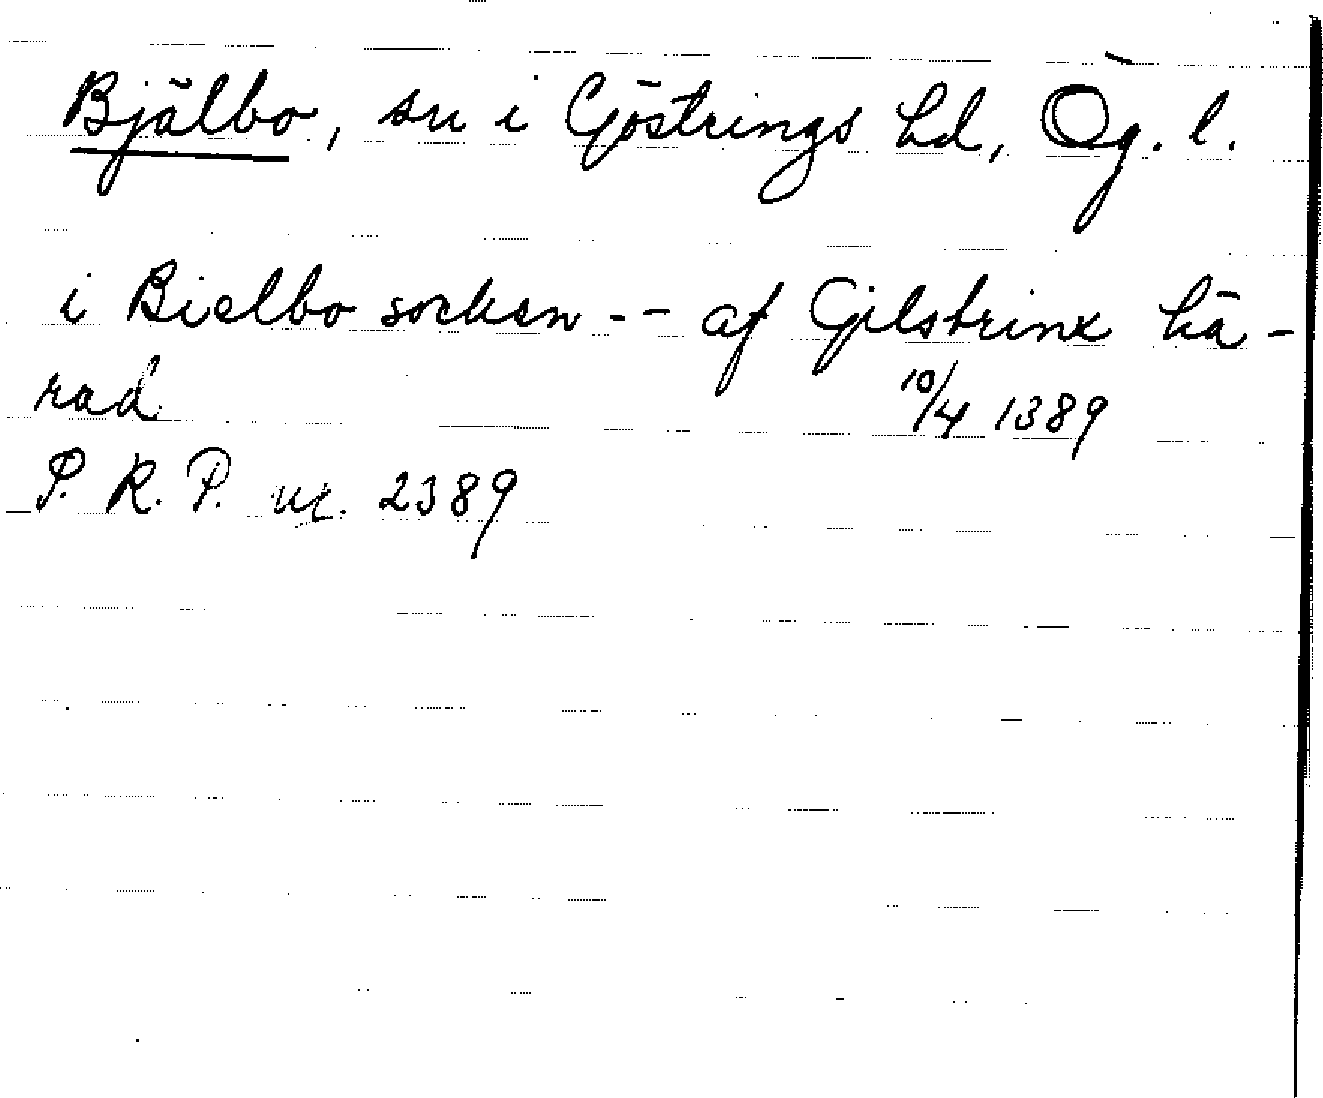 Bjälbo, sn i Göstrings hd, Ög. l.
i Bielbo socken -- af Gilstrinx hä-
rad 10/4 1389
S. R. P. nr. 2389